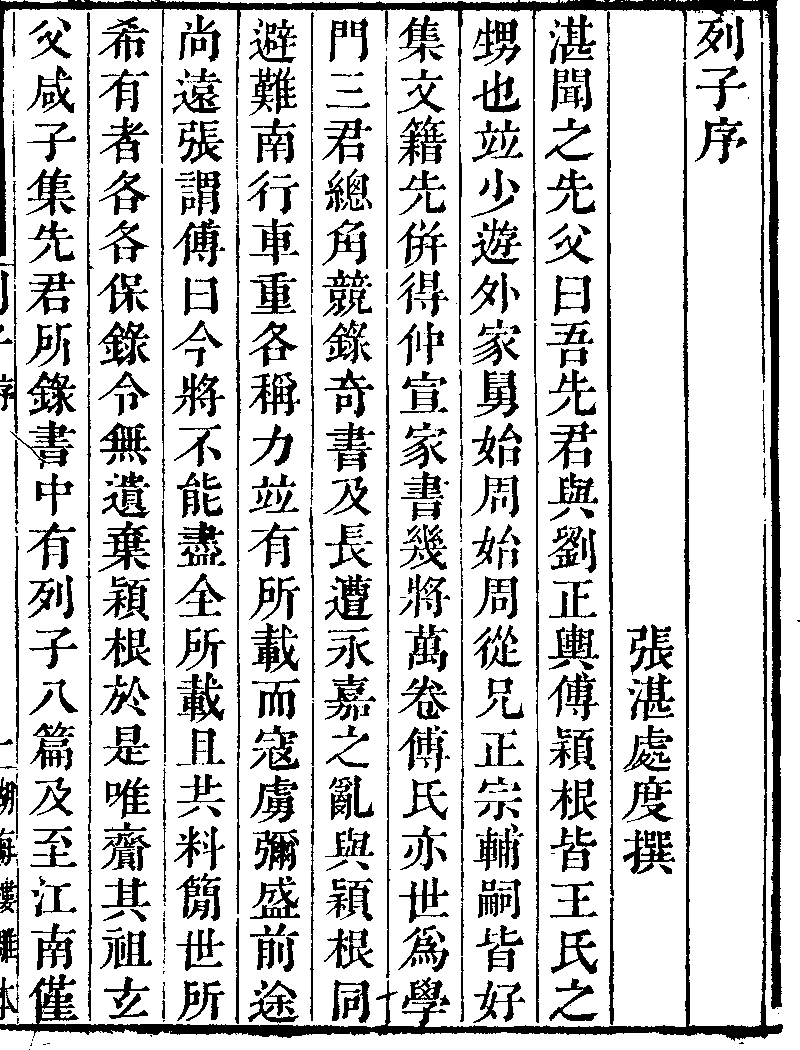 列子序
張湛處度撰
湛聞之先父曰吾先君與劉正輿傅穎根皆王氏之
甥也竝少遊外家舅始周始周從兄正宗輔嗣皆好
集文籍先倂得仲宣家書幾將萬卷傅氏亦世爲學
門三君總角競錄奇書及長遭永嘉之亂與穎根同
避難南行車重各稱力竝有所載而寇虜彌盛前途
尚遠張謂傅曰今將不能盡全所載且共料簡世所
希有者各各保錄令無遺棄穎根於是唯齎其祖玄
父咸子集先君所錄書中有列子八篇及至江南僅
列子序